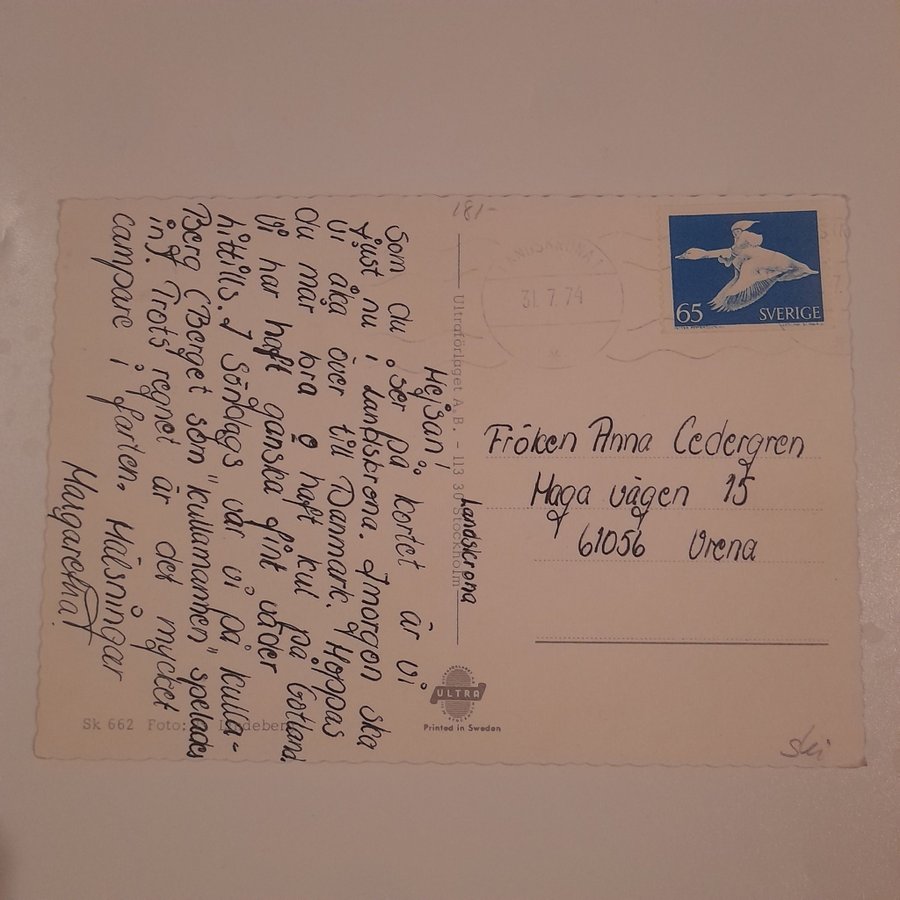 Hejsan!
Som du ser på kortet är vi
just nu i Landskrona. Imorgon ska
vi åka över till Danmark. Hoppas
du mår bra o haft kul på Gotland
Vi har haft ganska fint väder
hittills. I Söndags var vi på kulla-
Berg (Berget som "kullamannen" spelades
in). Trots regnet är det mycket
campare i farten. Hälsningar
Margaretha!
Sk 662 Foto:
Landskrona
Ultraförlaget A.B. - 113 30 Stockholm
181-
31.7.74
65 SVERIGE
Fröken Anna Cedergren
Haga vägen 15
61056 Vrena
ULTRA
Printed in Sweden